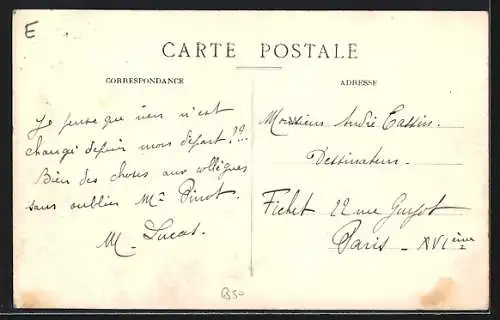 E
CARTE POSTALE
CORRESPONDANCE
ADRESSE
Je pense que rien n'est
changé depuis mon départ ?!!
Bien des choses aux collègues
sans oublier Mr Pinot.
M. Lucas.
Monsieur André Cassin.
Dessinateur.
Fichet 22 rue Guyot
Paris - XVIème
B50